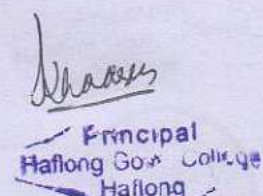 Principal
Haflong Govt College
Haflong